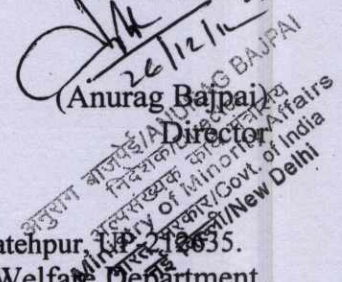 26/12/12
(Anurag Bajpai)
Director
अनुराग बाजपेई/ANURAG BAJPAI
निदेशक/Director
अल्पसंख्यक कार्य मंत्रालय
Ministry of Minority Affairs
भारत सरकार/Govt. of India
नई दिल्ली/New Delhi
atehpur, UP-212635.
Welfare Department